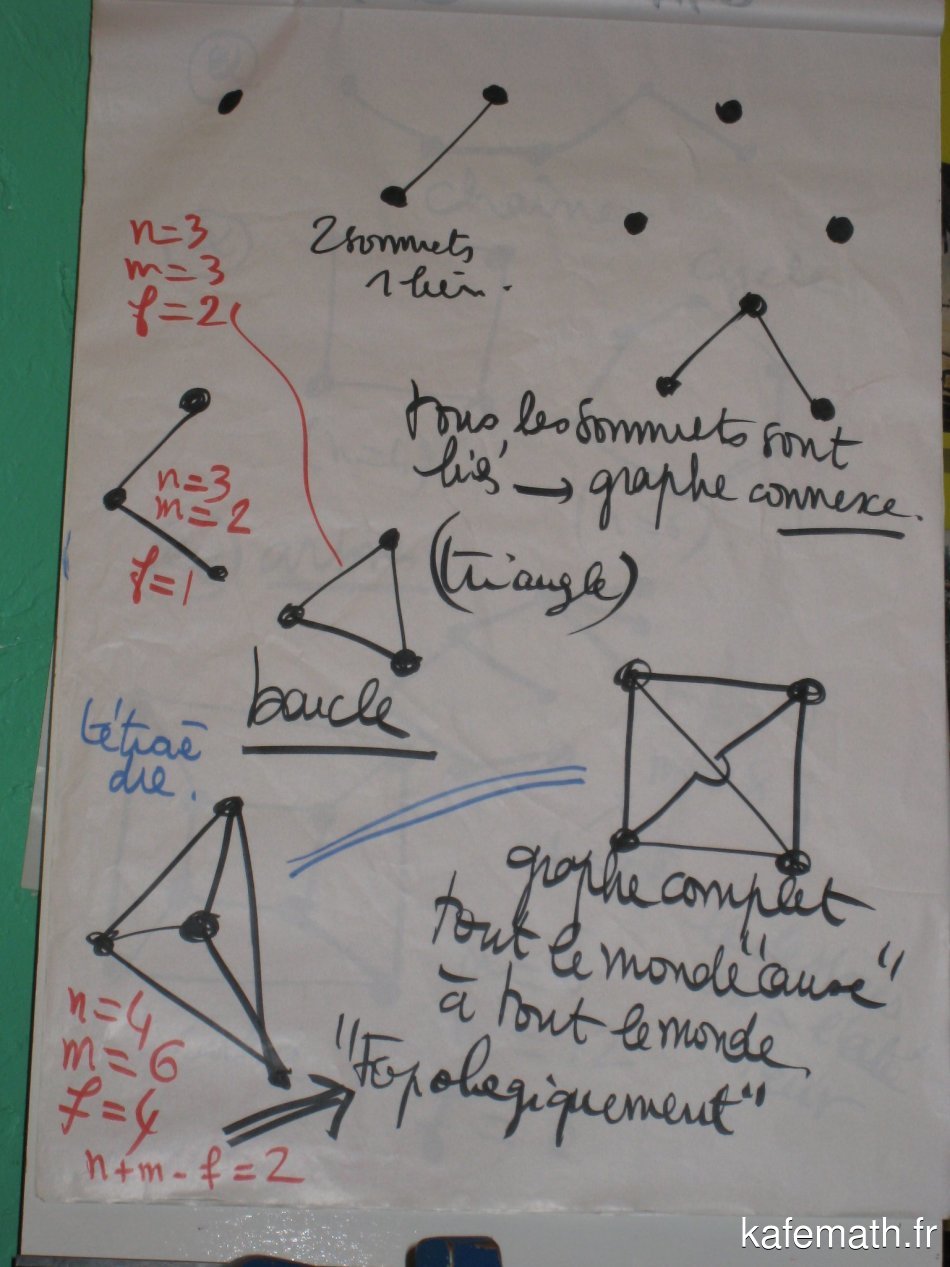 n=3
m=3
f=2
2 sommets
1 lien.
tous les sommets sont
liés → graphe connexe.
n=3
m=2
f=1
(triangle)
boucle
tétraè
dre.
graphe complet
tout le monde "cause"
à tout le monde
n=4
m=6
f=4
"Topologiquement"
n+m-f=2
kafemath.fr